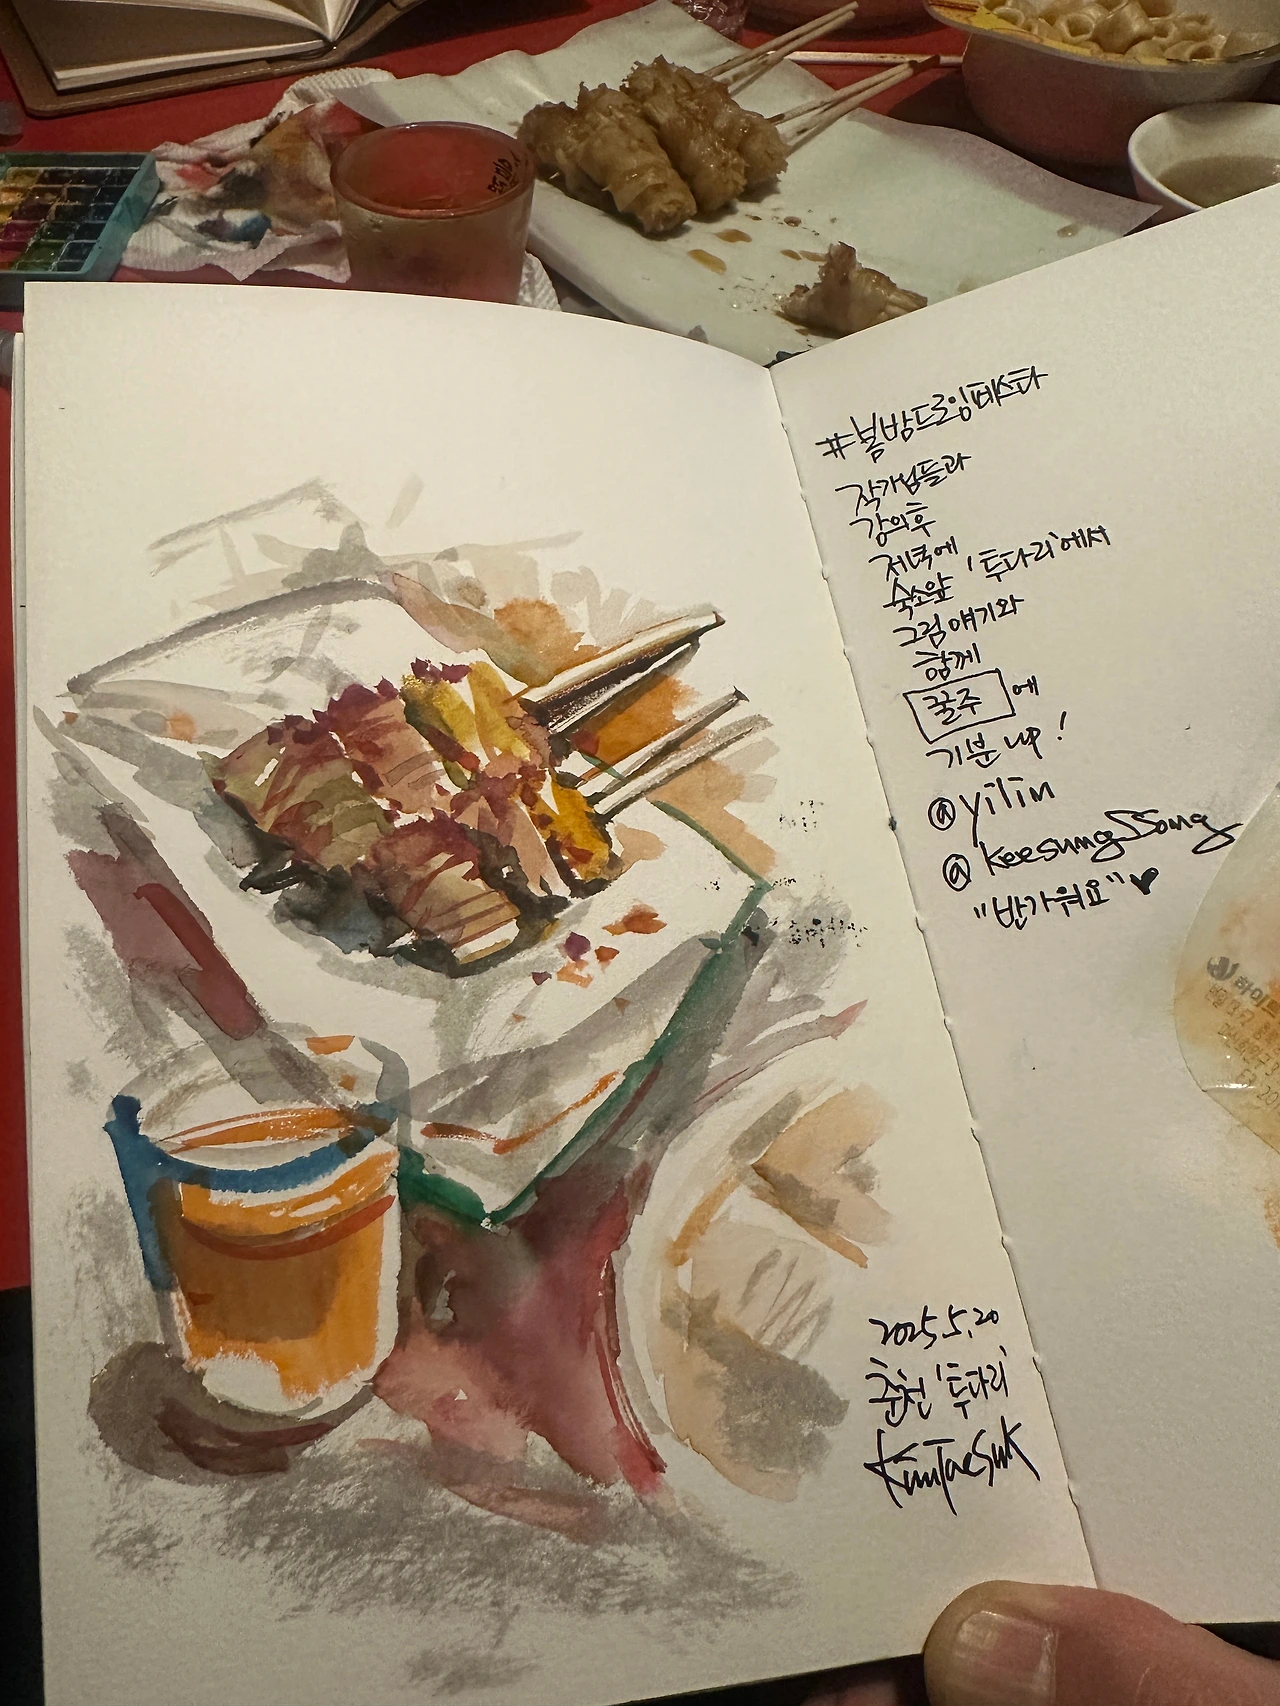 #봄밤드로잉페스타
작가님들과
강의후
저녁에
숙소앞 '투다리'에서
그림얘기와
함께
꿀주에
기분 up!
@yilin
@KeesungSong
"반가워요"♥
2025.5.20
춘천 '투다리'
KimTaeSuk